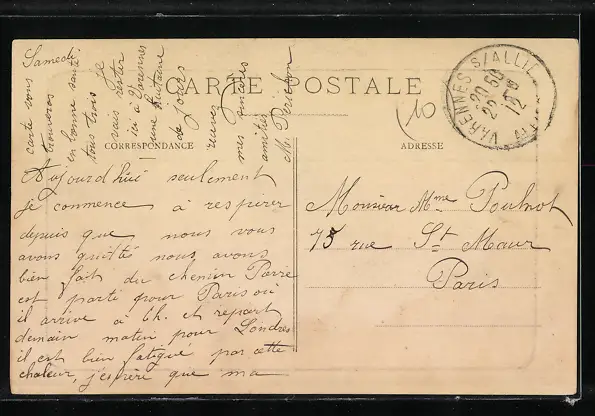 CARTE POSTALE
CORRESPONDANCE
ADRESSE
VARENNES S/ALLIER
20 50
12
10
Samedi
Aujourd'hui seulement
je commence à respirer
depuis que nous vous
avons quitté nous avons
bien fait du chemin Pierre
est parti pour Paris où
il arrive à 6h. et repart
demain matin pour Londres
il est bien fatigué par cette
chaleur, j'espère que ma
carte vous
trouvera
en bonne santé
tous trois je
vais rester
ici à Varennes
une huitaine
de jours
recevez
mes sincères
amitiés
M.
Monsieur Mme Poulnot
75 rue St Maur
Paris